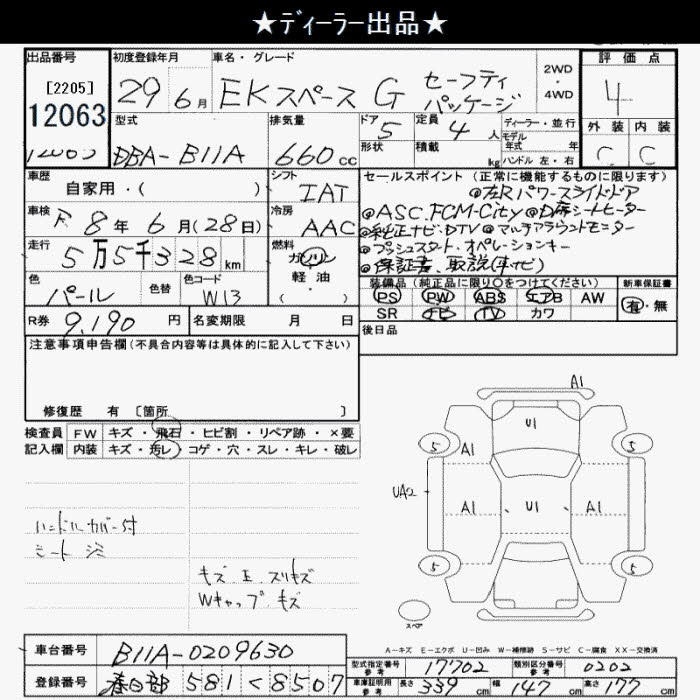 ★ディーラー出品★
出品番号
[2205]
12063
初度登録年月
29 6月
車名・グレード
EKスペース G セーフティ
パッケージ
2WD
4WD
評価点
4
外装 内装
C C
型式
DBA-B11A
排気量
660cc
ドア 5
形状
定員 4 人
積載 kg
ディーラー・並行
モデル
年式 年
ハンドル 左・右
車歴
自家用・( )
シフト
IAT
車検
R 8年 6月(28日)
冷房
AAC
走行
5万5千328km
燃料
ガソリン
軽・油
・( )
色
パール
色替
色コード
W13
R券 9,190 円
名変期限 月 日
セールスポイント(正常に機能するものに限ります)
@左Rパワースライドドア
@ASC.FCM-City @D席シートヒーター
@純正ナビ・DTV @マルチアラウンドモニター
@プッシュスタート・オペレーションキー
@保証書、取説(車・ナビ)
装備品(純正品に限り○をつけてください)
PS PW ABS エアB AW
SR ナビ TV カワ
新車保証書
有・無
後日品
注意事項申告欄(不具合内容等は具体的に記入して下さい)
修復歴 有 〔箇所 〕
検査員
記入欄
FW キズ・飛石・ヒビ割・リペア跡・×要
内装 キズ・汚レ・コゲ・穴・スレ・キレ・破レ
ハンドルカバー付
シート シミ
キズ E スリキズ
Wキャップ キズ
A1
U1
5 5
A1
UA2
A1 U1 A1
5 5
スペア
A-キズ E-エクボ U-凹み W-補修跡 S-サビ C-腐食 XX-交換済
車台番号 B11A-0209630
登録番号 春日部 581 く 8507
型式指定番号
参考
17702
類別区分番号
参考
0202
車庫証明用
参考
長さ 339 cm 幅 147 cm 高さ 177 cm